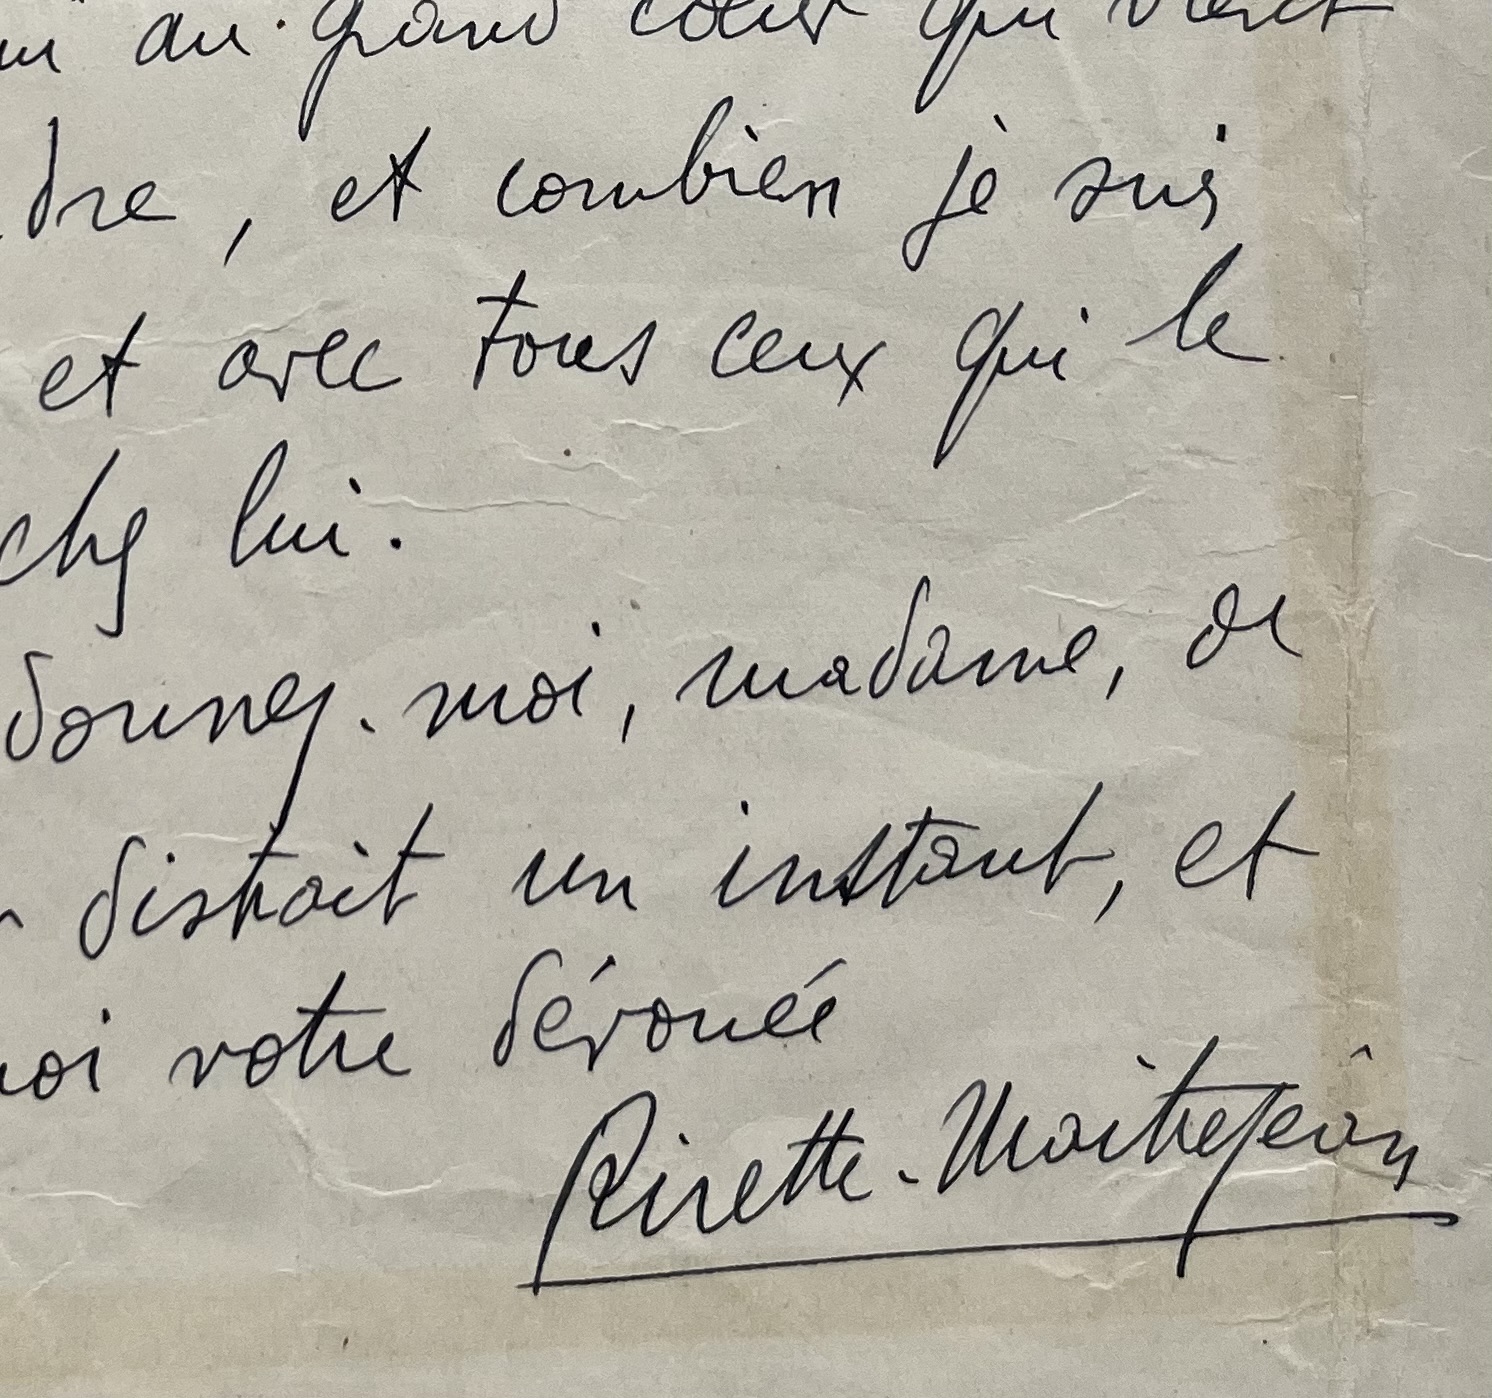 au grand cœur qui vient
dre, et combien je suis
et avec tous ceux qui le
chez lui.
donnez-moi, madame, de
distrait un instant, et
moi votre dévouée
Rirette-Maîtrejean